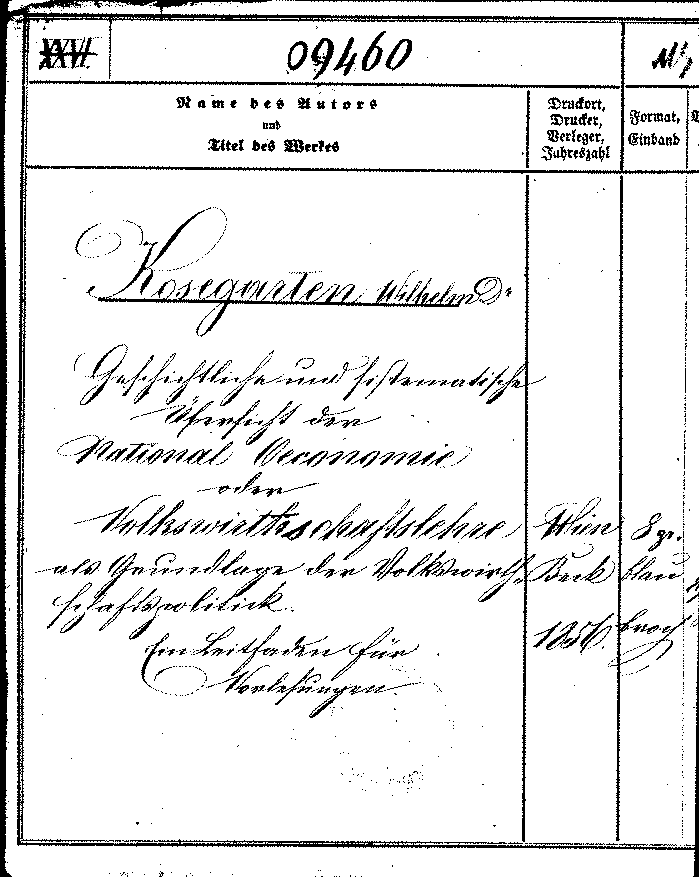 XXVI.
09460
Name des Autors
und
Titel des Werkes
Druckort,
Drucker,
Verleger,
Jahreszahl
Format,
Einband
Kosegarten Wilhelm Dr
Geschichtliche und sistematische
Übersicht der
National Oeconomie
oder
Volkswirthschaftslehre
als Grundlage der Volkswirth-
schaftspolitick.
Ein Leitfaden für
Vorlesungen.
Wien
Beck
1856.
8 gr.
blau
broch